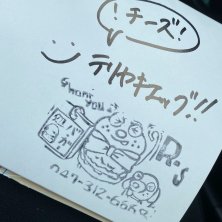 !チーズ!
テリヤキエッグ!!
Thank you
R's
047-312-6660